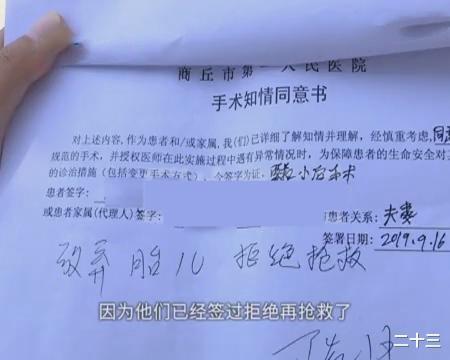 商丘市第一人民医院
手术知情同意书
对上述内容,作为患者和/或家属,我(们)已详细了解知情并理解,经慎重考虑,同意
规范的手术,并授权医师在此实施过程中遇有异常情况时,为保障患者的生命安全对
的诊治措施(包括变更手术方式)。今签字为证,
患者签字:
或患者家属(代理人)签字: 与患者关系:夫妻
签署日期:2019.9.16
放弃胎儿 拒绝抢救
因为他们已经签过拒绝再抢救了
二十三